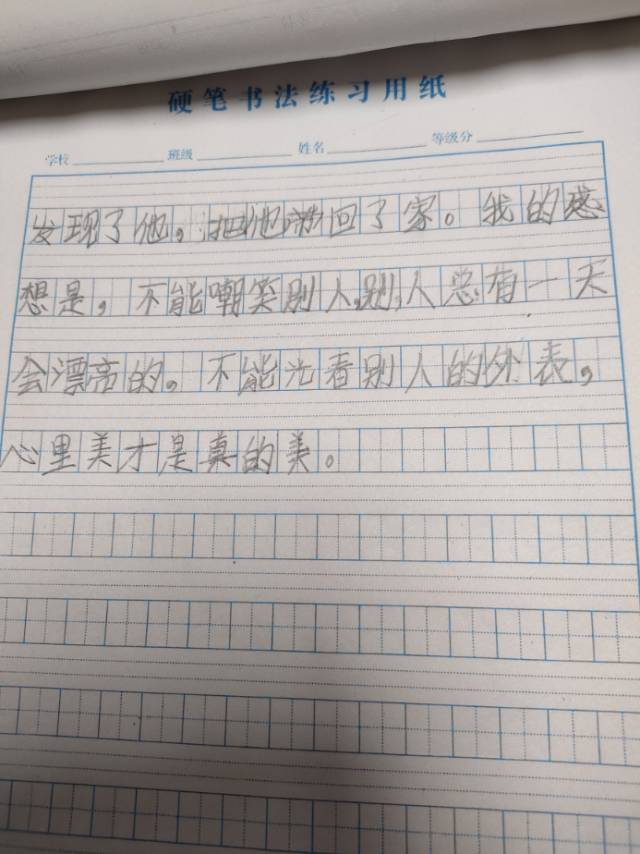 硬笔书法练习用纸
学校 班级 姓名 等级分
发现了他,把他带回了家。我的感
想是,不能嘲笑别人,别人总有一天
会漂亮的,不能光看别人的外表,
心里美才是真的美。